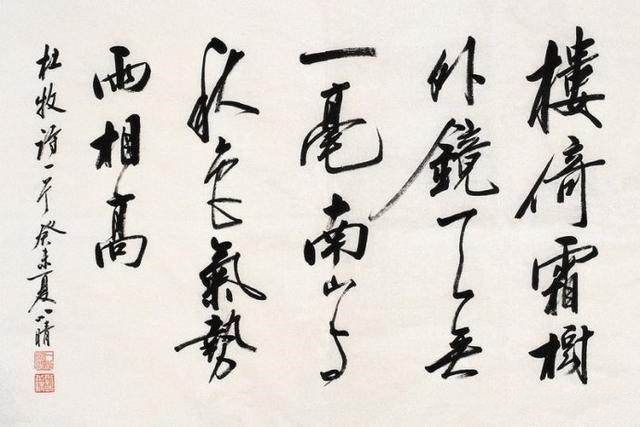 樓倚霜樹
外鏡天無
一毫南山与
秋色氣勢
兩相高
杜牧诗一首 癸未夏